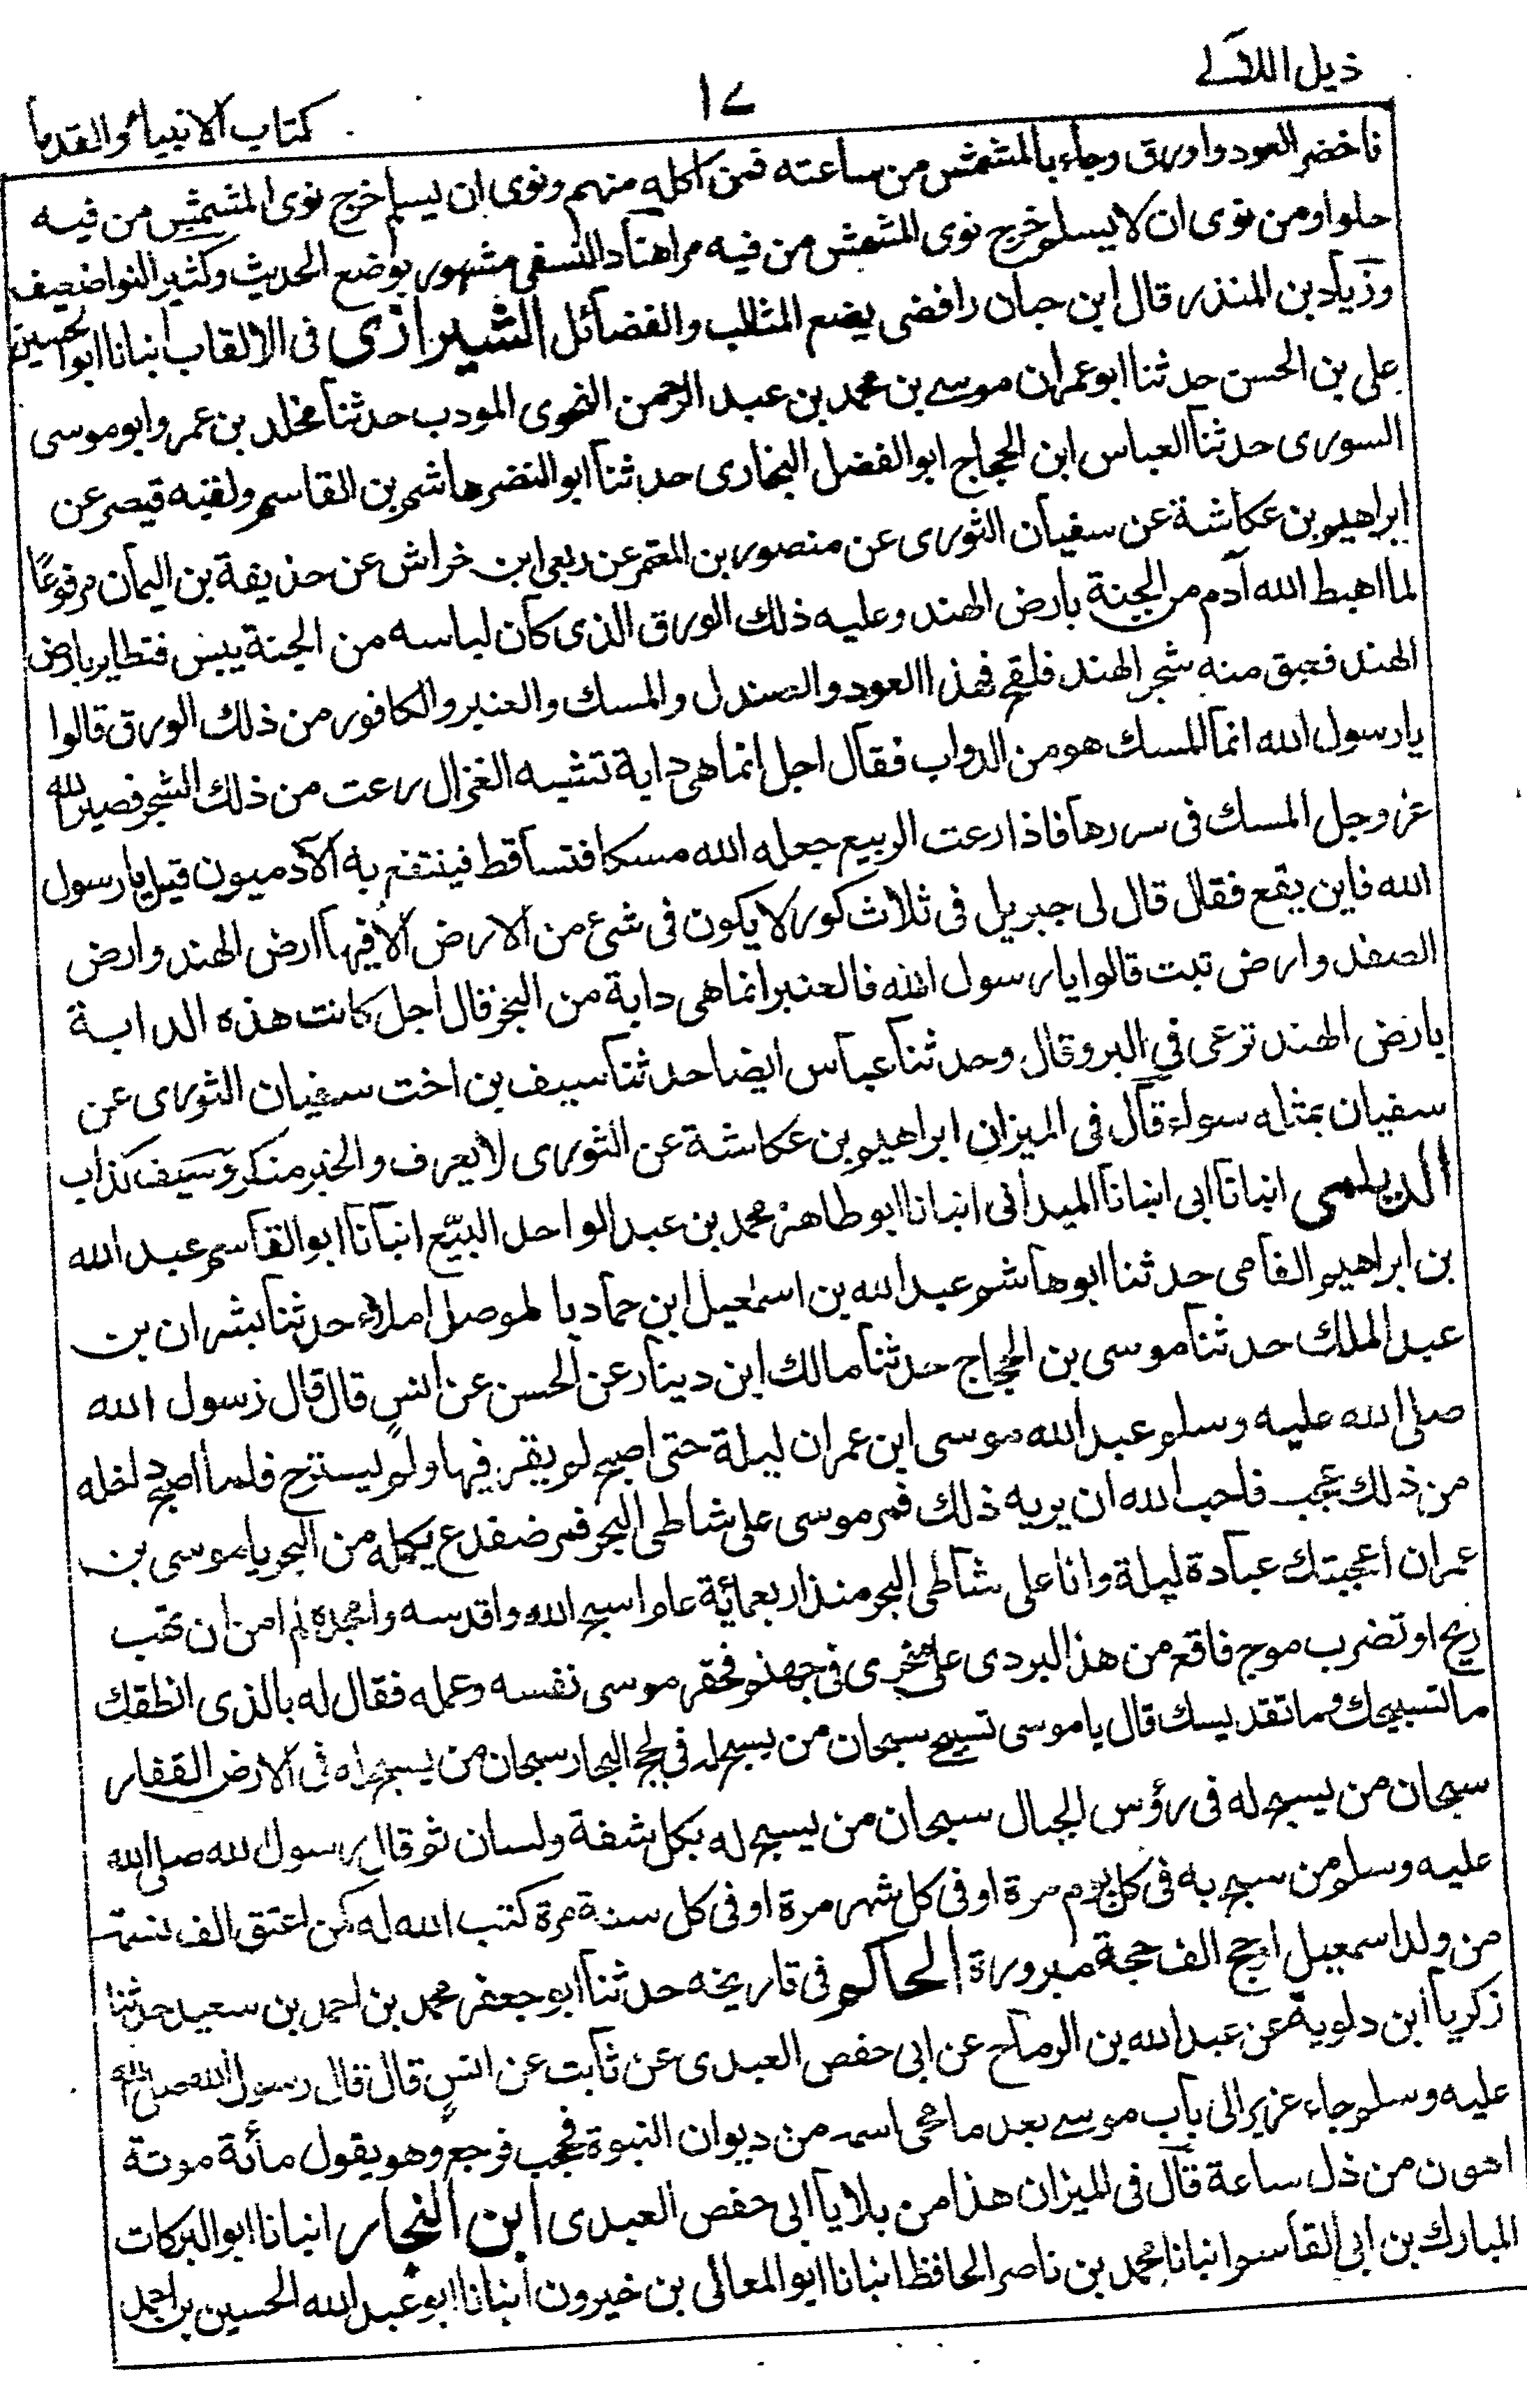 ذيل اللآلے
١٧
كتاب الانبياء والقدما
فاخضر العود واورق وجاء بالمشمش من ساعته فمن اكله منهم ونوى ان يسلم خرج نوى المشمش من فيه
حلوا ومن نوى ان لا يسلم خرج نوى المشمش من فيه مرا هناد النسفى مشهور بوضع الحديث وكثير النوا ضعيف
وزياد بن المنذر قال ابن حبان رافضى يضع المثالب والفضائل الشيرازى فى الالقاب انبانا ابو الحسين
على بن الحسن حدثنا ابو عمران موسے بن محمد بن عبد الرحمن النحوى المودب حدثنا مخلد بن عمر وابو موسى
السورى حدثنا العباس ابن الحجاج ابو الفضل البخارى حدثنا ابو النضر هاشم بن القاسم ولقبه قيصر عن
ابراهيم بن عكاشة عن سفيان الثورى عن منصور بن المعتمر عن ربعى ابن خراش عن حذيفة بن اليمان مرفوعًا
لما اهبط الله آدم من الجنة بارض الهند وعليه ذلك الورق الذى كان لباسه من الجنة يبس فتطاير بارض
الهند فعبق منه شجر الهند فلقح فهذا العود والصندل والمسك والعنبر والكافور من ذلك الورق قالوا
يا رسول الله انما المسك هو من الدواب فقال اجل انما هى دابة تشبه الغزال رعت من ذلك الشجر فصير الله
عز وجل المسك فى سررها فاذا رعت الربيع جعله الله مسكا فتساقط فينتفع به الآدميون قيل يا رسول
الله فاين يقع فقال قال لى جبريل فى ثلاث كور لا يكون فى شئ من الارض الا فيها ارض الهند وارض
الصغد وارض تبت قالوا يا رسول الله فالعنبر انما هى دابة من البحر قال اجل كانت هذه الدابة
بارض الهند ترعى فى البر وقال وحدثنا عباس ايضا حدثنا سيف بن اخت سفيان الثورى عن
سفيان بمثله سواء قال فى الميزان ابراهيم بن عكاشة عن الثورى لا يعرف والخبر منكر وسيف كذاب
الديلمى انبانا ابى انبانا الميدانى انبانا ابو طاهر محمد بن عبد الواحد البيّع انبانا ابو القاسم عبد الله
بن ابراهيم الفامى حدثنا ابو هاشم عبد الله بن اسمعيل ابن حماد بالموصل املاء حدثنا بشران بن
عبد الملك حدثنا موسى بن الحجاج حدثنا مالك ابن دينار عن الحسن عن انس قال قال رسول الله
صلى الله عليه وسلم عبد الله موسى ابن عمران ليلة حتى اصبح لم يقر فيها ولم يسترح فلما اصبح دخله
من ذلك عجب فاحب الله ان يريه ذلك فمر موسى على شاطى البحر فمر ضفدع يكلمه من البحر يا موسى بن
عمران اعجبتك عبادة ليلة وانا على شاطى البحر منذ اربعمائة عام اسبح الله واقدسه وامجده لم امن ان تهب
ريح او تضرب موج فاقع من هذ البردى على منخرى فى جهنم فحقر موسى نفسه وعمله فقال له بالذى انطقك
ما تسبيحك وما تقديسك قال يا موسى تسبيح سبحان من يسبح له فى لجج البحار سبحان من يسبح له فى الارض القفار
سبحان من يسبح له فى رؤس الجبال سبحان من يسبح له بكل شفة ولسان ثم قال رسول الله صلى الله
عليه وسلم من سبح به فى كل يوم مرة او فى كل شهر مرة او فى كل سنة مرة كتب الله له كمن اعتق الف نسمة
من ولد اسمعيل او حج الف حجة مبرورة الحاكم فى تاريخه حدثنا ابو جعفر محمد بن احمد بن سعيد حدثنا
زكريا ابن دلوية عن عبد الله بن الرماح عن ابى حفص العبدى عن ثابت عن انس قال قال رسول الله صلى الله
عليه وسلم جاء عزير الى باب موسے بعد ما محى اسمه من ديوان النبوة فحجب فرجع وهو يقول مائة موتة
اهون من ذل ساعة قال فى الميزان هذا من بلايا ابى حفص العبدى ابن النجار انبانا ابو البركات
المبارك بن ابى القاسم انبانا محمد بن ناصر الحافظ انبانا ابو المعالى بن خيرون انبانا ابو عبد الله الحسين بن احمد